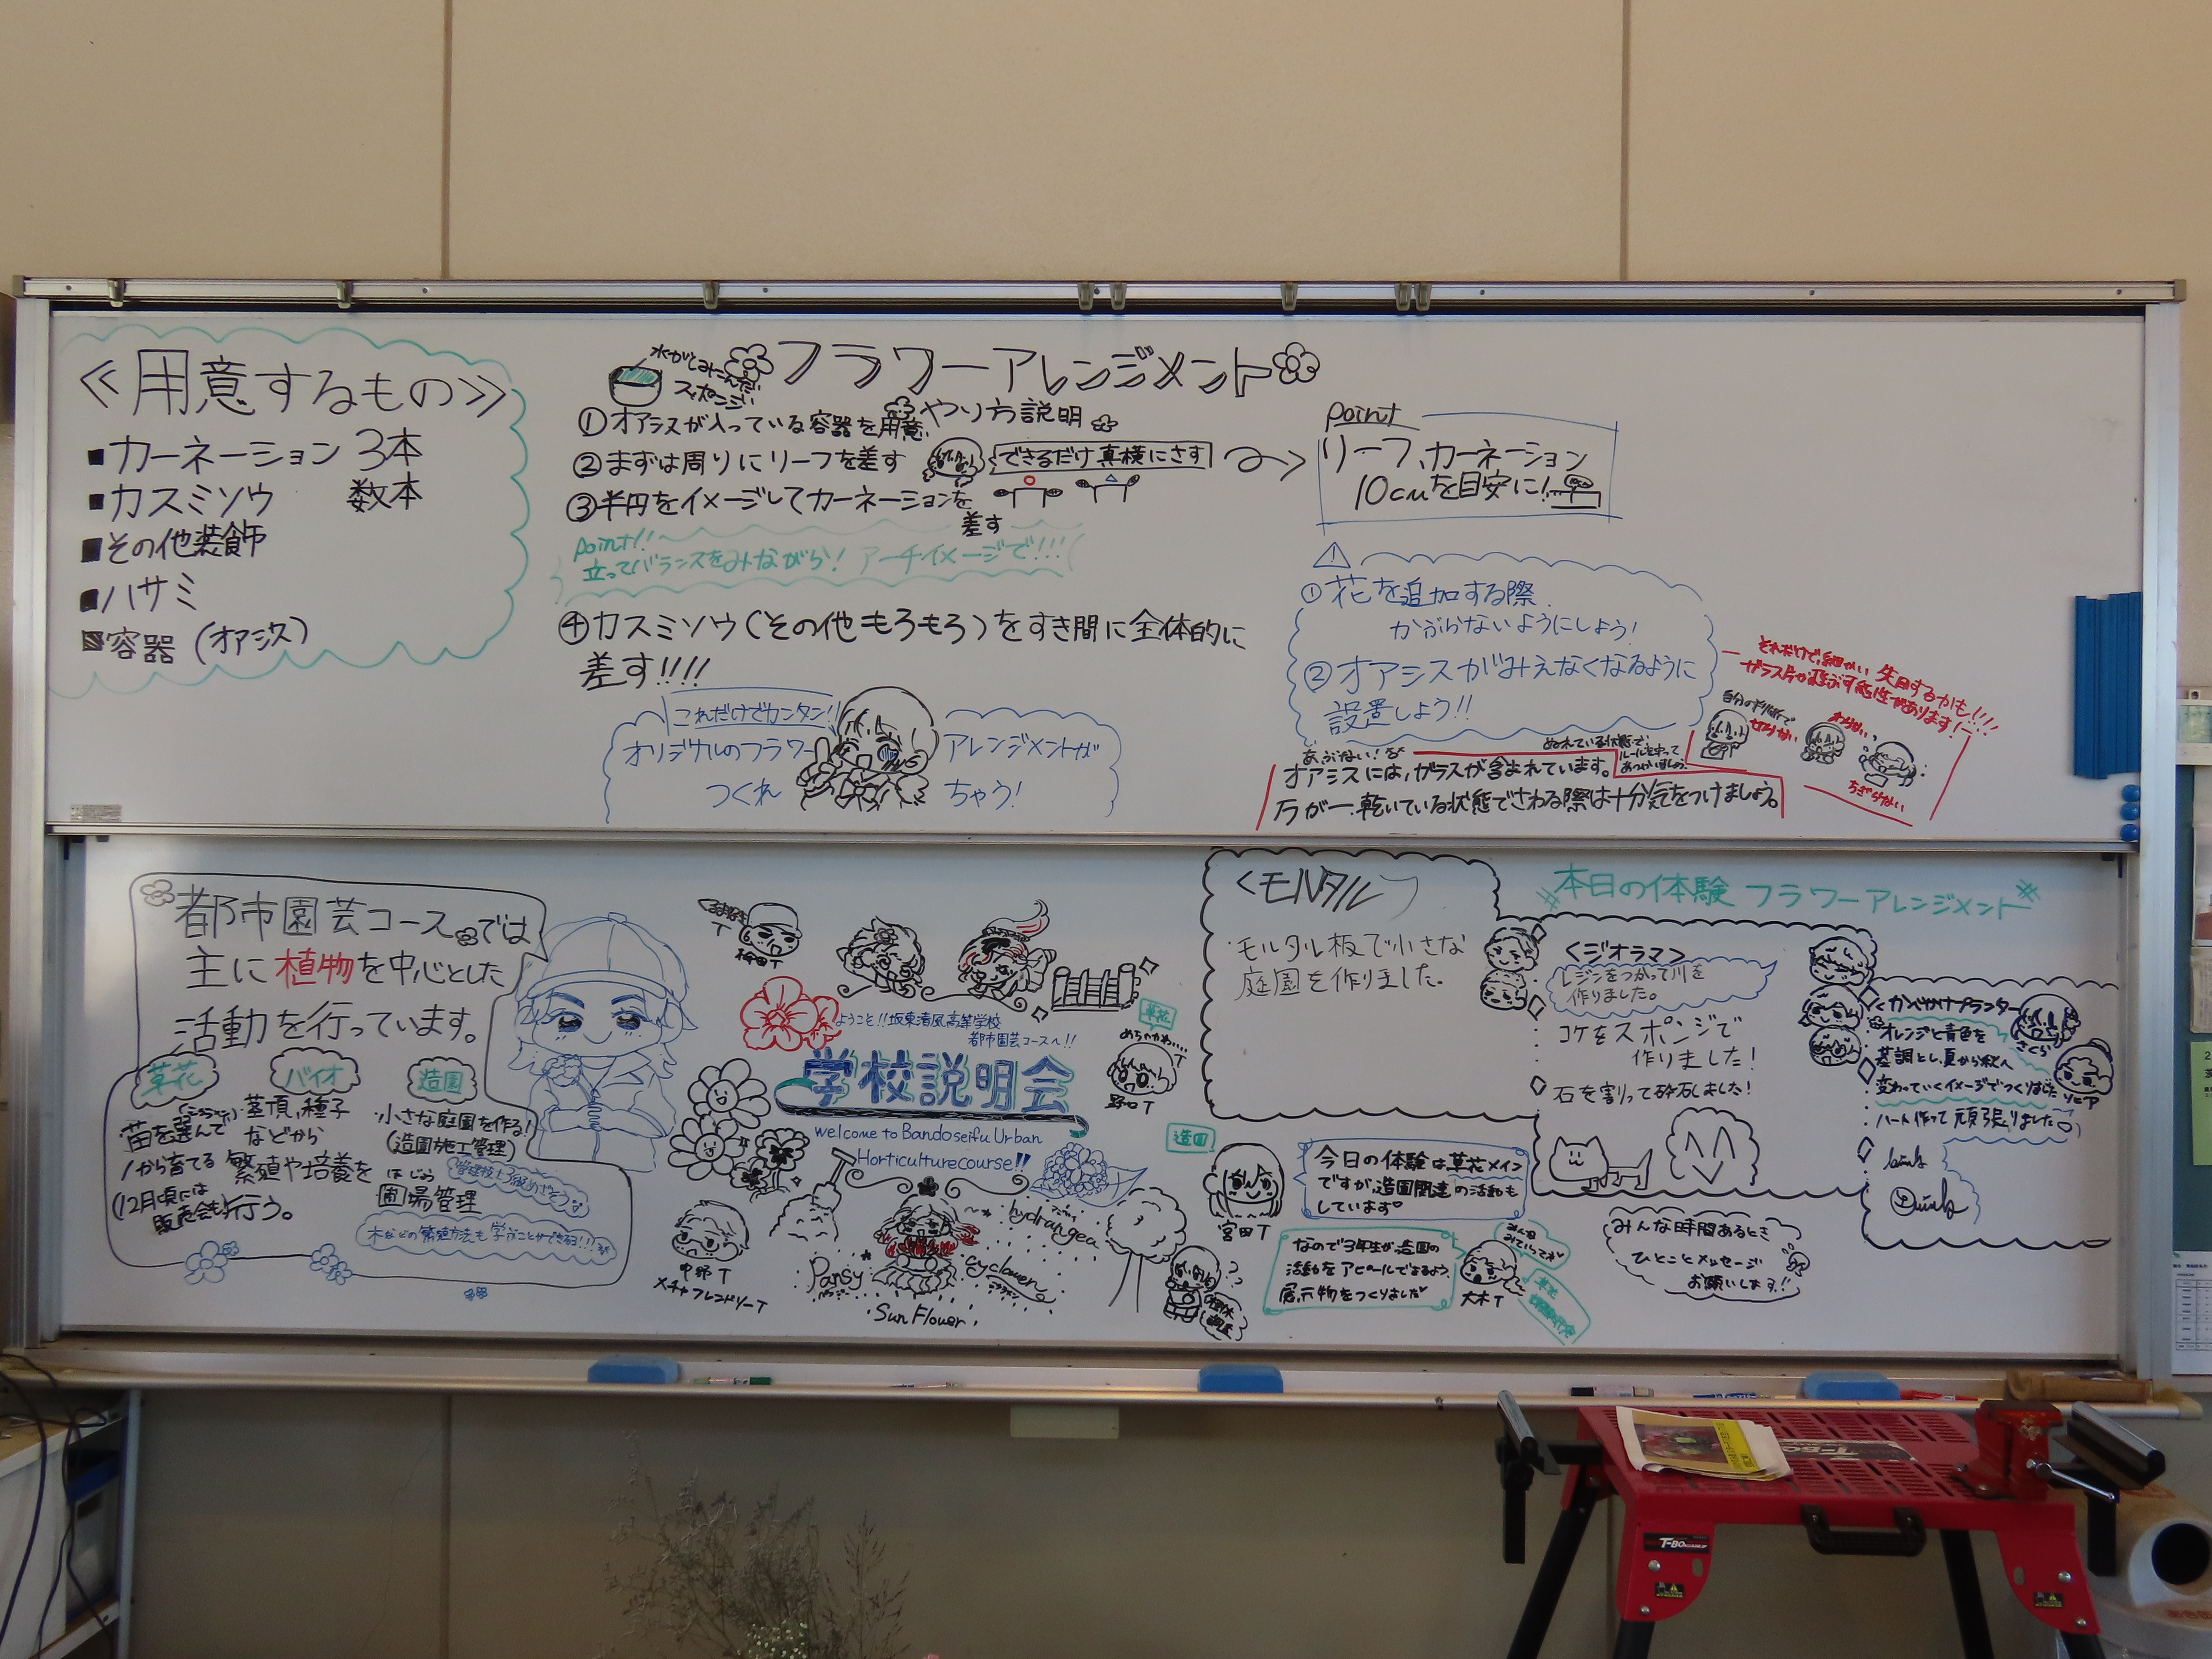 ≪用意するもの≫
■カーネーション 3本
■カスミソウ 数本
■その他装飾
■ハサミ
■容器(オアシス)
フラワーアレンジメント
やり方説明
スポンジ
①オアシスが入っている容器を用意
②まずは周りにリーフを差す
できるだけ真横にさす
③半円をイメージしてカーネーションを
差す
Point!!
立ってバランスをみながら! アーチイメージで!!!
④カスミソウ(その他もろもろ)をすき間に全体的に
差す!!!!
これだけでカンタン!
オリジナルのフラワー
アレンジメントが
つくれ
ちゃう!
Point
リーフ、カーネーション
10cmを目安に!
①花を追加する際
かぶらないようにしよう!
②オアシスがみえなくなるように
設置しよう!!
それだけで、細かい
失明するかも!!!!
ガラス片が飛ぶ可能性があります!
自分の判断で
切らない
さわらない
ちぎらない
あぶない!
ぬれている状態で、
ルールを守って
あつかいましょう
オアシスには、ガラスが含まれています。
万が一、乾いている状態でさわる際は十分気をつけましょう。
都市園芸コースでは
主に植物を中心とした
活動を行っています。
草花
苗を選んで
1から育てる
(12月頃には
販売会も)
バイオ
茎頂、種子
などから
繁殖や培養を
行う。
造園
小さな庭園を作る!
(造園施工管理)
ほじょう
圃場管理
木などの繁殖方法も学ぶことができるヨ!!!
ようこそ!!坂東清風高等学校
都市園芸コースへ!!
学校説明会
welcome to Bandoseifu Urban
Horticulture course!!
草花
野口T
中野T
メチャフレンドリーT
Pansy
Sun Flower
hydrangea
cyclamen
造園
宮田T
今日の体験は草花メイン
ですが、造園関連の活動も
しています
なので3年生が造園の
活動をアピールできるよう、
展示物をつくりました
大木T
<モルタル>
モルタル板で小さな
庭園を作りました。
本日の体験 フラワーアレンジメント
<ジオラマ>
レジンをつかって川を
作りました。
コケをスポンジで
作りました!
石を割って砕石しました!
<かべかけプランター>
オレンジと青色を
基調とし、夏から秋へ
変わっていくイメージでつくりました
ハート作って頑張りました
さくら
ソニア
みんな時間あるとき
ひとことメッセージ
お願いします!!
T-BO